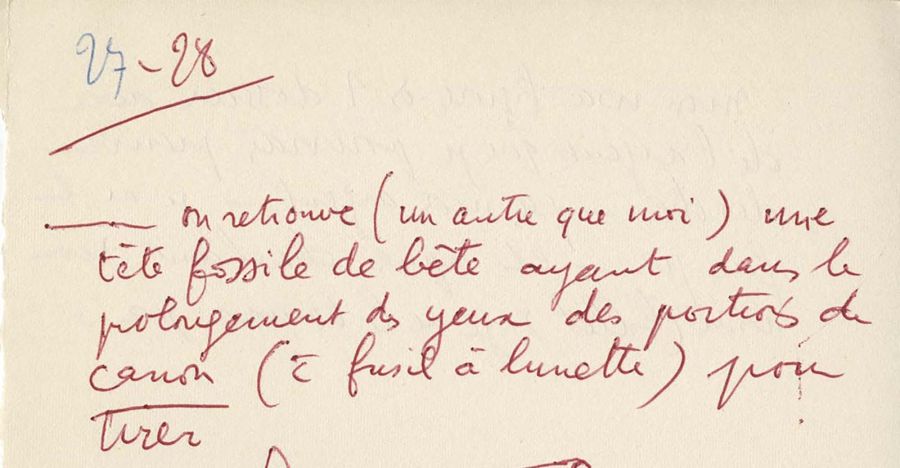 27-28
— on retrouve (un autre que moi) une
tête fossile de bête ayant dans le
prolongement des yeux des portions de
canon (c̄ fusil à lunette) pour
tirer